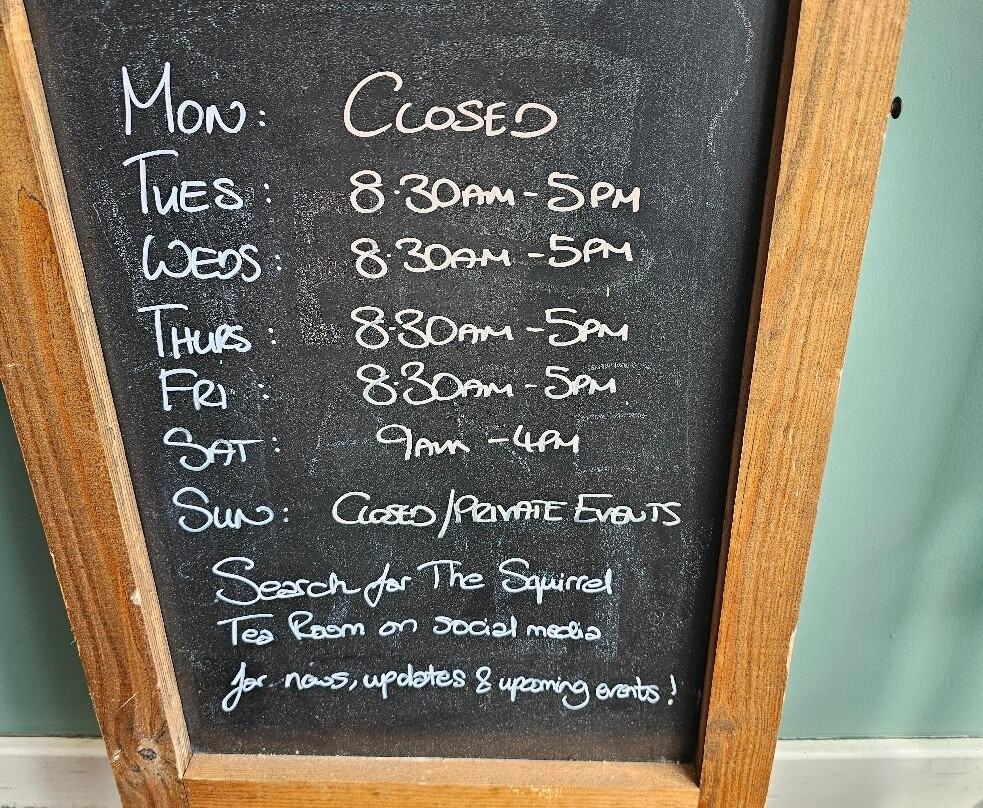 MON: CLOSED
TUES: 8.30AM-5PM
WEDS: 8.30AM-5PM
THURS: 8.30AM-5PM
FRI: 8.30AM-5PM
SAT: 9AM-4PM
SUN: CLOSED/PRIVATE EVENTS
Search for The Squirrel
Tea Room on social media
for news, updates & upcoming events!